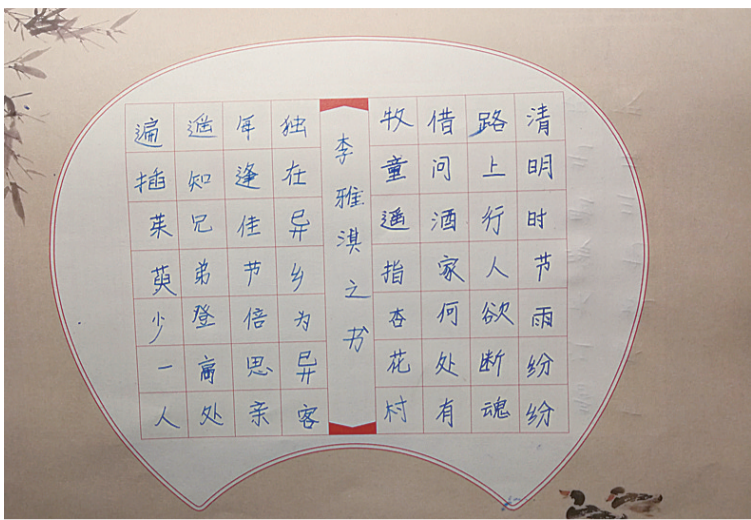 清明时节雨纷纷
路上行人欲断魂
借问酒家何处有
牧童遥指杏花村
李雅淇之书
独在异乡为异客
年逢佳节倍思亲
遥知兄弟登高处
遍插茱萸少一人